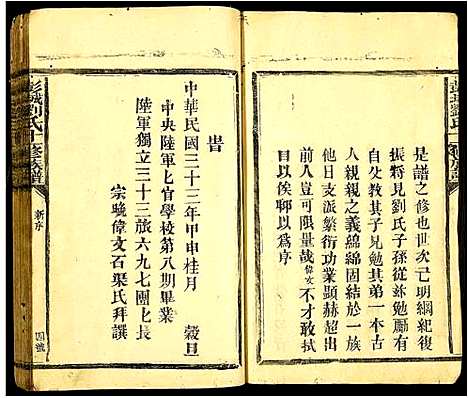 是譜之修也世次已明綱紀復
振將見劉氏子孫從茲勉厲有
自父敎其子兄勉其弟一本古
人親親之義綿綿固結於一族
他日支派繁衍功業顯赫超出
前人豈可限量哉偉文不才敢拭
目以俟聊以爲序
旹
中華民國三十三年甲申桂月 穀旦
中央陸軍上官學校第八期畢業
陸軍獨立三十三旅六九七團上長
宗晚偉文石渠氏拜譔
彭城劉氏十修族譜
新序
四號